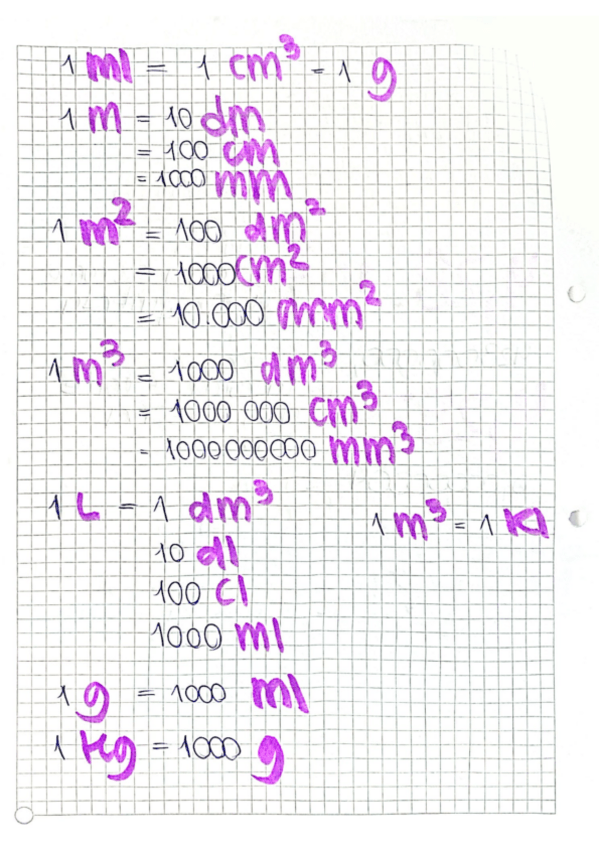 1 ml = 1 cm³ = 1 g
1 m = 10 dm
= 100 cm
= 1000 mm
1 m² = 100 dm²
= 1000 cm²
= 10.000 mm²
1 m³ = 1000 dm³
= 1000 000 cm³
= 1000000000 mm³
1 L = 1 dm³
1 m³ = 1 Kl
10 dl
100 cl
1000 ml
1 g = 1000 ml
1 Kg = 1000 g